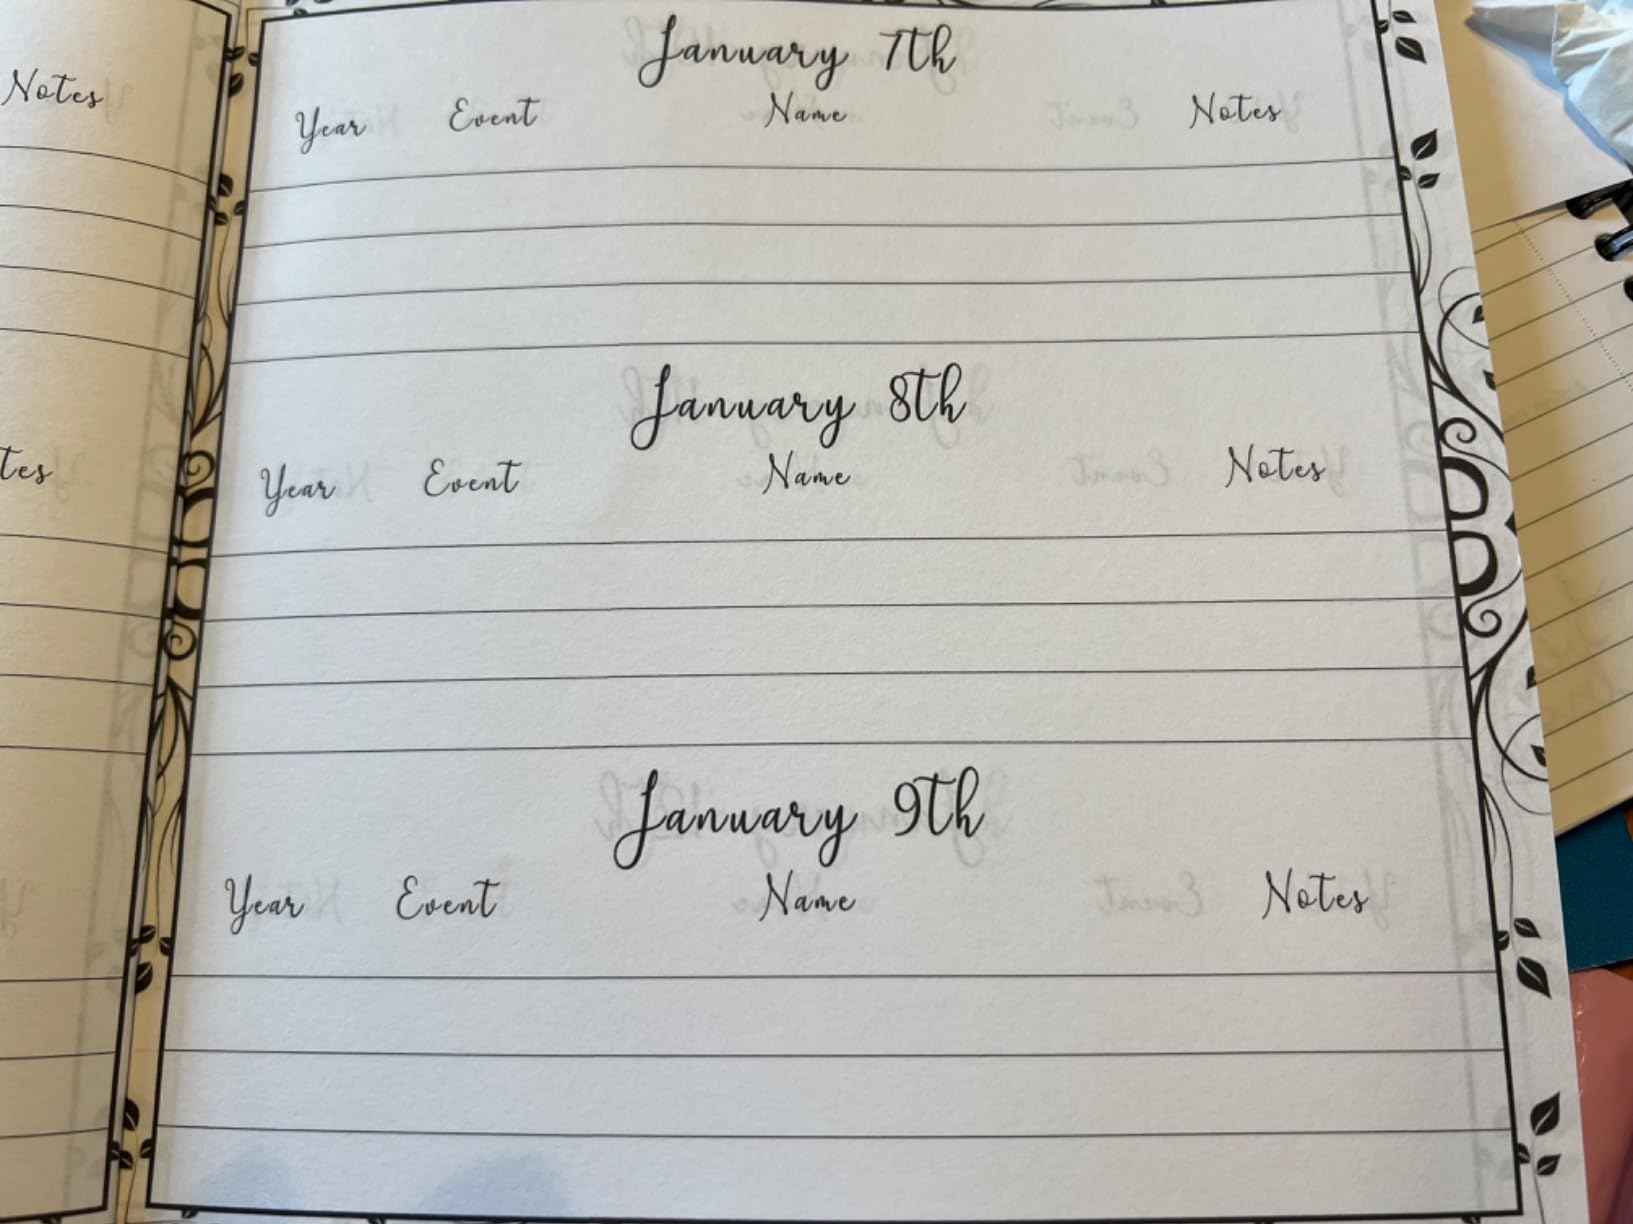 Notes
tes
January 7th
Year Event Name Notes
January 8th
Year Event Name Notes
January 9th
Year Event Name Notes